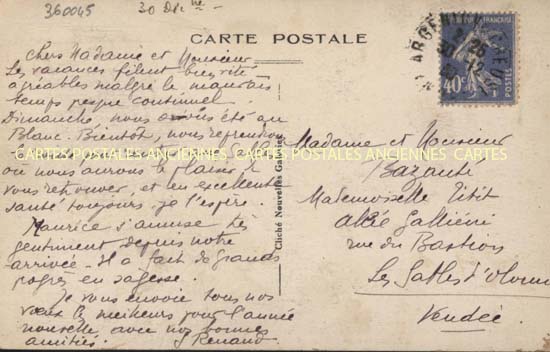 360045
30 Dec
CARTE POSTALE
ARGENT
RÉPUBLIQUE FRANÇAISE
40c
POSTES
Chers Madame et Monsieur
Les vacances filent bien vite
agréables malgré le mauvais
temps presque continuel.
Dimanche, nous avons été au
Blanc. Bientôt, nous reprendrons
CARTES POSTALES ANCIENNES CARTES POSTALES ANCIENNES CARTES
où nous aurons le plaisir de
vous retrouver, et en excellente
santé toujours je l'espère.
Maurice s'amuse très
gentiment depuis notre
arrivée. Il a fait de grands
progrès en sagesse.
Je vous envoie tous nos
vœux les meilleurs pour l'année
nouvelle avec nos bonnes
amitiés. Renaud
Cliché Nouvelles Galeries
Madame et Monsieur
Mademoiselle Titit
allée Galliéni
rue du Bastion
Les Sables d'Olonne
Vendée